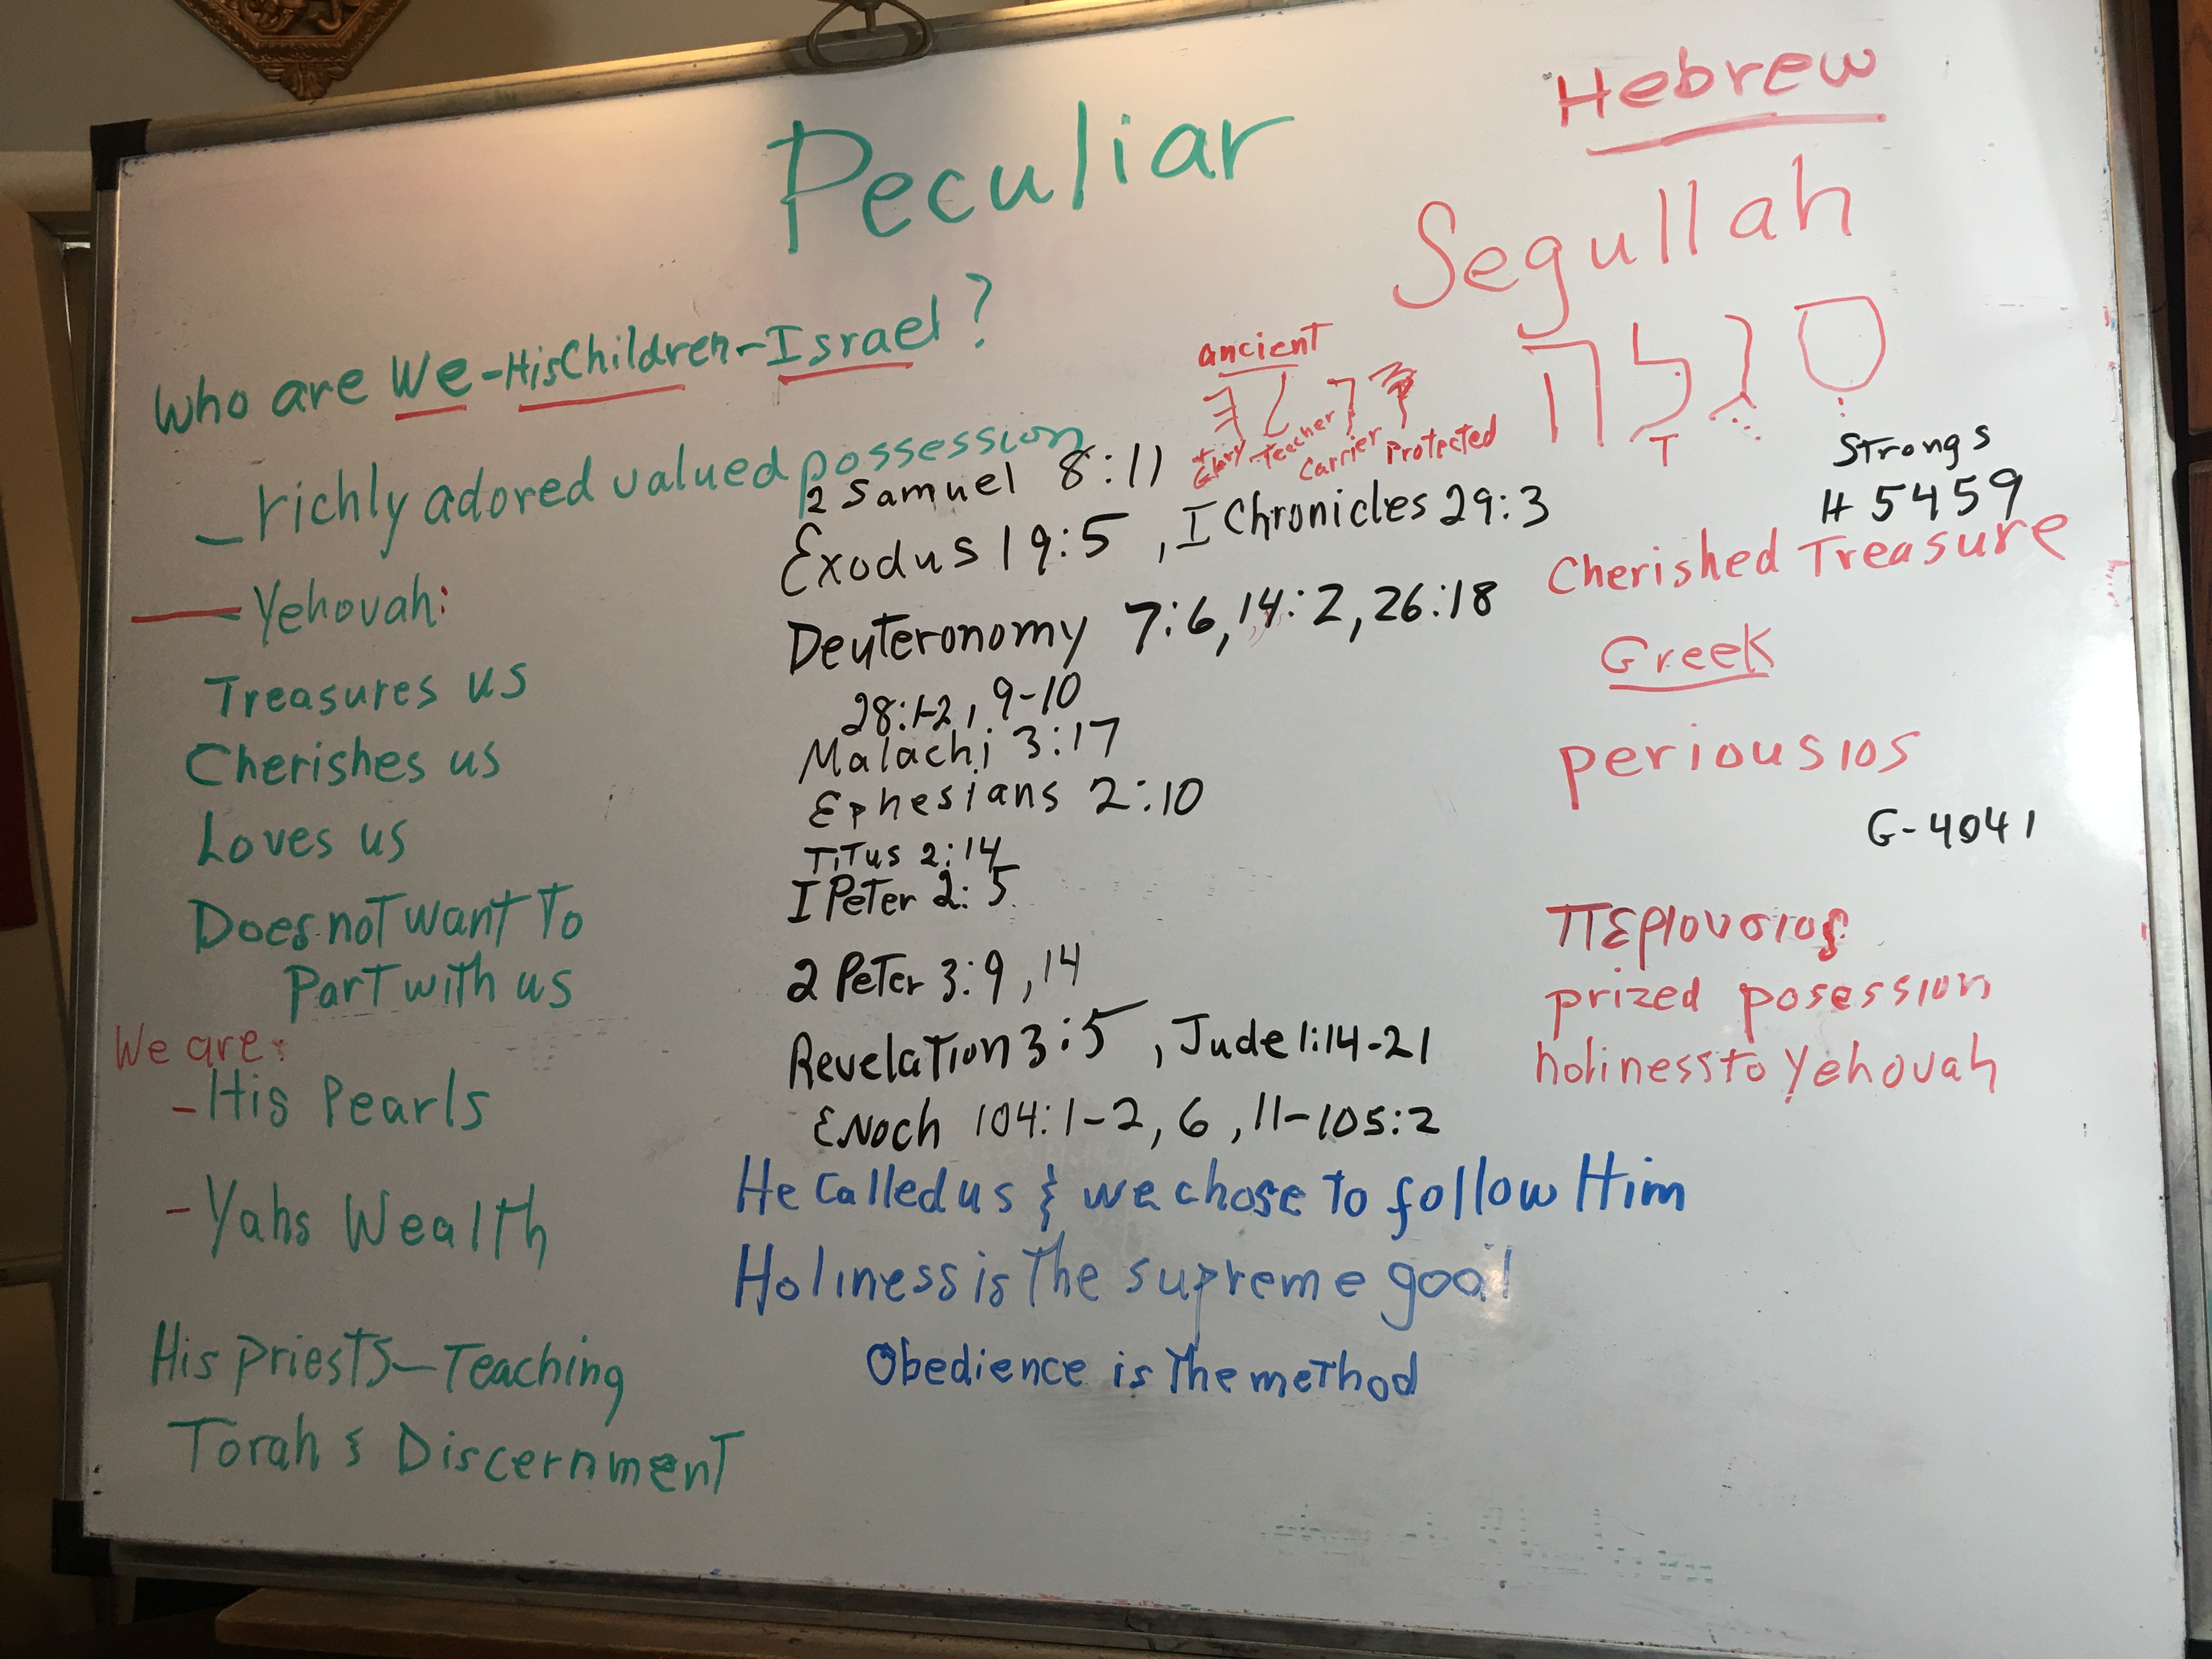 Peculiar
Who are We-HisChildren-Israel?
richly adored valued possession
Yehovah:
Treasures us
Cherishes us
Loves us
Does not want To
Part with us
We are:
- His Pearls
- Yahs Wealth
His priests-Teaching
Torah & Discernment
2 Samuel 8:11
Exodus 19:5, I Chronicles 29:3
Deuteronomy 7:6, 14:2, 26:18
28:1-2, 9-10
Malachi 3:17
Ephesians 2:10
Titus 2:14
I Peter 2:5
2 Peter 3:9, 14
Revelation 3:5, Jude 1:14-21
Enoch 104:1-2, 6, 11-105:2
He Called us & we chose to follow Him
Holiness is The supreme goal
Obedience is The method
Hebrew
Segullah
סגלה
T
ancient
Glory Teacher Carrier Protected
Strongs
H 5459
Cherished Treasure
Greek
periousios
G-4041
περιουσιος
prized posession
holiness to Yehovah